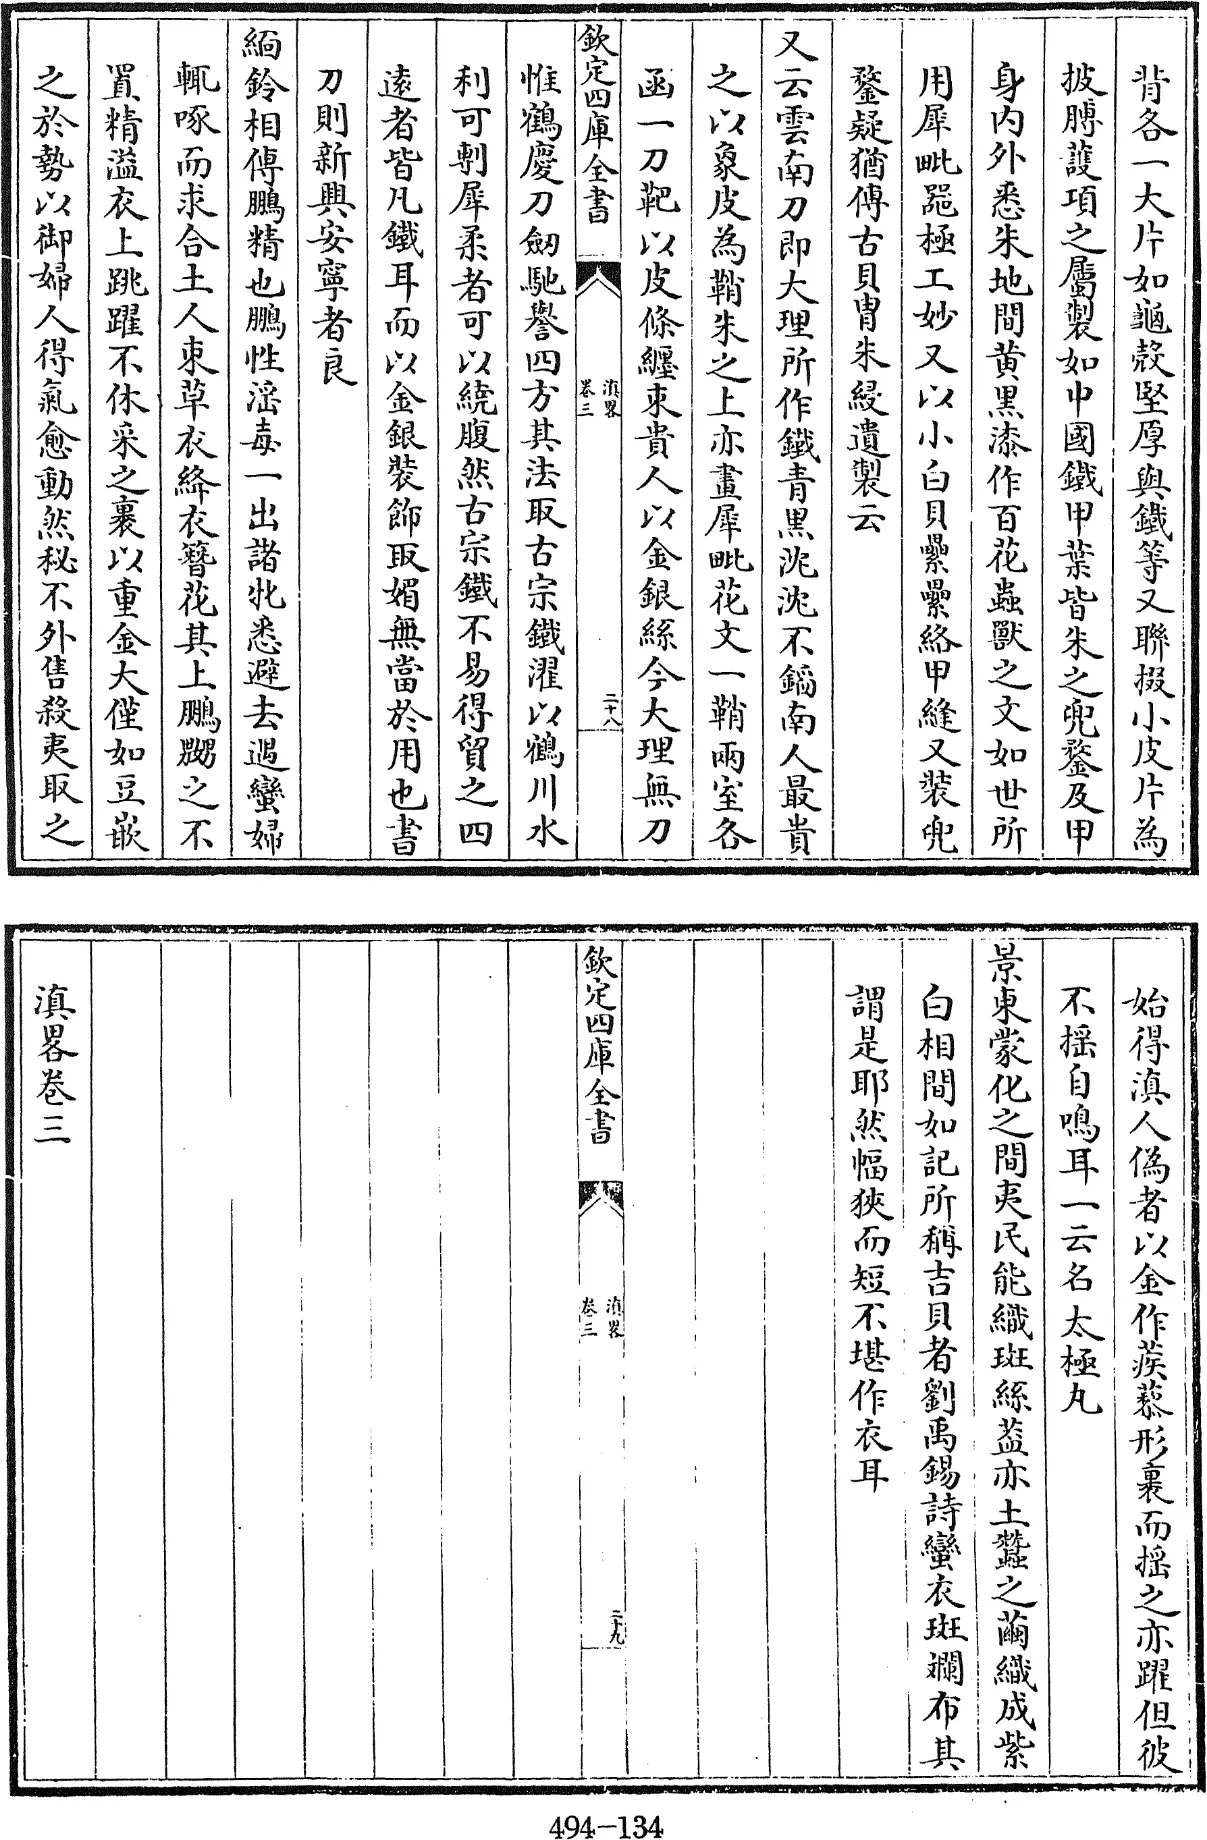 背各一大片如龜殻堅厚與鐵等又聯掇小皮片為
披膊䕶項之屬製如中國鐵甲葉皆朱之兜鍪及甲
身内外悉朱地間黄黒漆作百花蟲獸之文如世所
用犀毗噐極工妙又以小白貝纍纍絡甲縫又装兜
鍪疑猶傳古貝胄朱綅遺製云
又云雲南刀即大理所作鐵青黒沈沈不鎬南人最貴
之以象皮為鞘朱之上亦畫犀毗花文一鞘兩室各
函一刀靶以皮條纒朿貴人以金銀絲今大理無刀
欽定四庫全書
滇畧
卷三
二十八
惟鶴慶刀劒馳譽四方其法取古宗鐵濯以鶴川水
利可剸犀柔者可以繞腹然古宗鐵不易得貿之四
逺者皆凡鐵耳而以金銀装飾取媚無當於用也書
刀則新興安寧者良
緬鈴相傳鵬精也鵬性淫毒一出諸牝悉避去遇蠻婦
輒啄而求合土人朿草衣絳衣簪花其上鵬嬲之不
置精溢衣上跳躍不休采之裹以重金大僅如豆嵌
之於勢以御婦人得氣愈動然秘不外售殺夷取之
始得滇人偽者以金作蒺藜形裹而揺之亦躍但彼
不揺自鳴耳一云名太極丸
景東䝉化之間夷民能織斑絲葢亦土蠶之繭織成紫
白相間如記所稱吉貝者劉禹錫詩蠻衣斑斕布其
謂是耶然幅狹而短不堪作衣耳
欽定四庫全書
滇畧
卷三
二十九
滇畧卷三
494-134